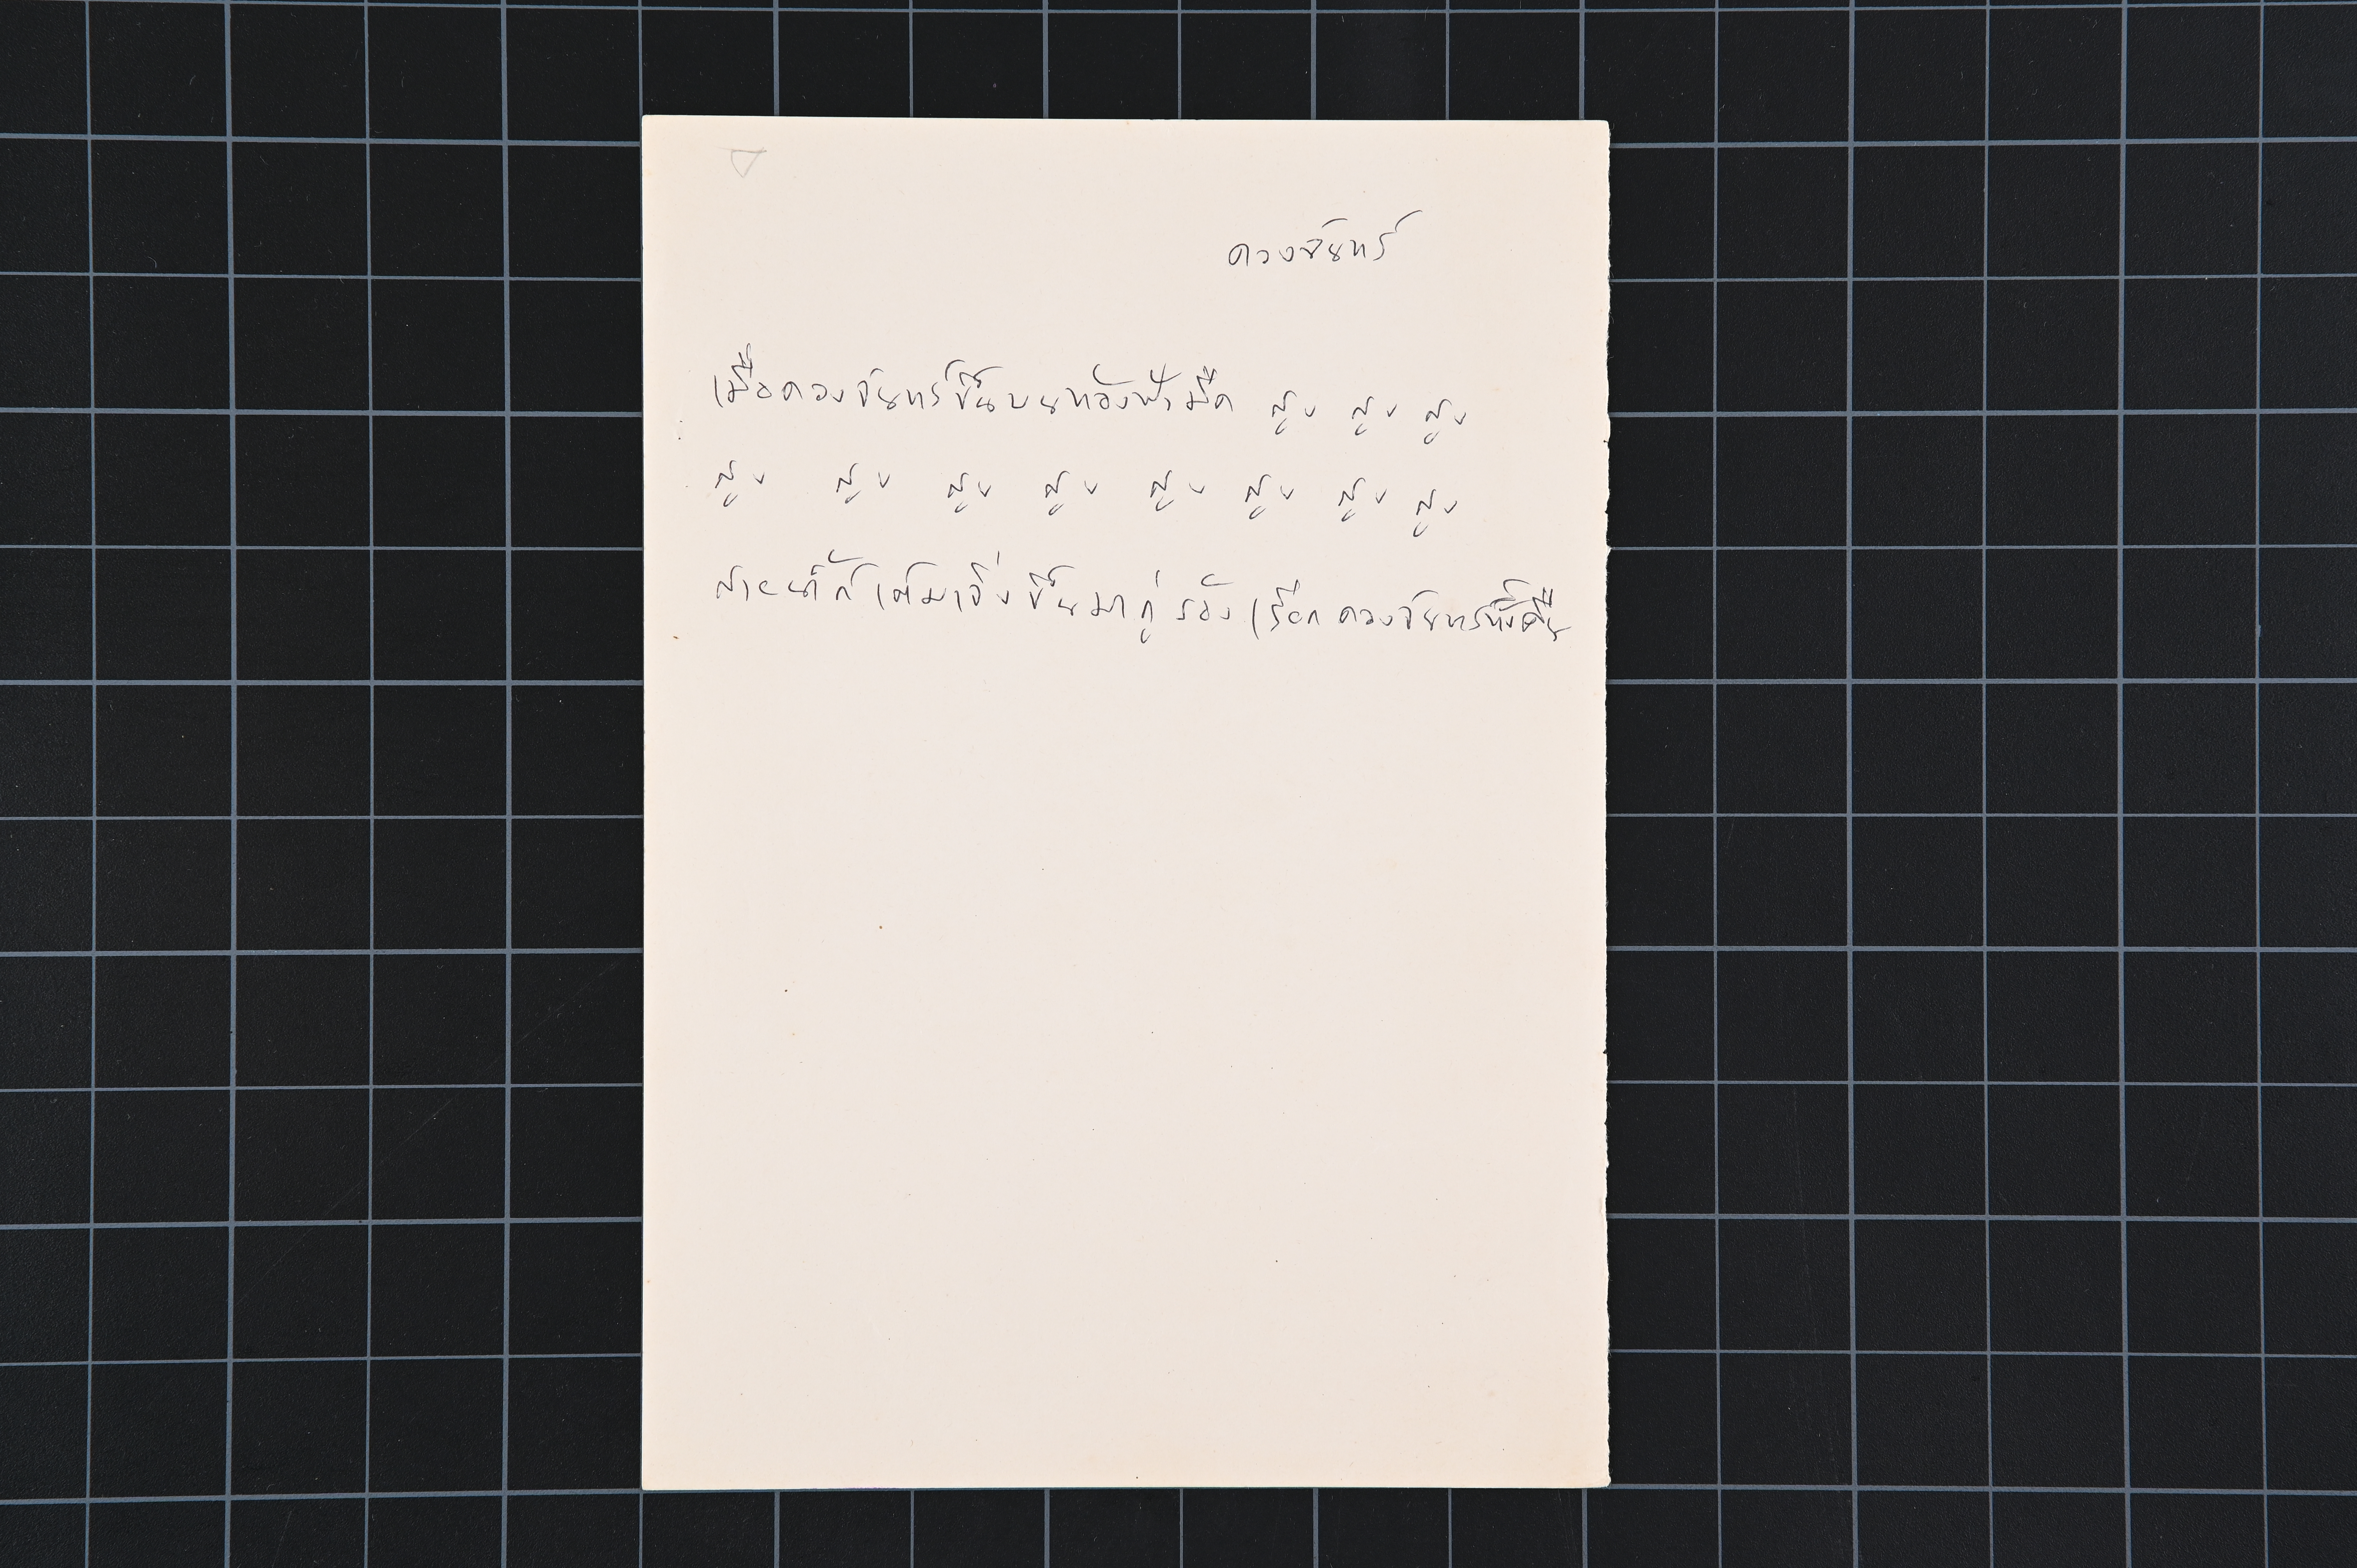 ดวงจันทร์
เมื่อดวงจันทร์ขึ้นบนท้องฟ้ามืด สูง สูง สูง
สูง สูง สูง สูง สูง สูง สูง สูง
จึงขึ้นมากู่ร้องเรียกดวงจันทร์ทั้งคืน